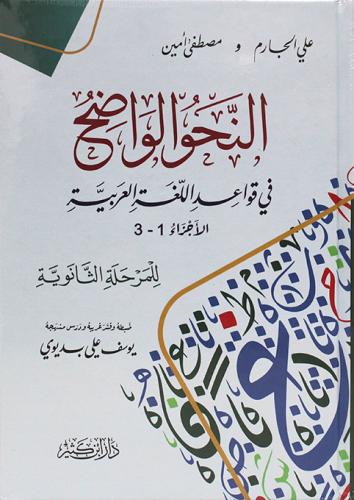 علي الجارم و مصطفى أمين
النَّحو الوَاضِحُ
في قواعد اللّغة العربيّة
الأجزاء 1 - 3
للمرحلة الثانوية
ضبطه وفسّر غريبه ودرس منهجه
يوسف علي بديوي
دار ابن كثير